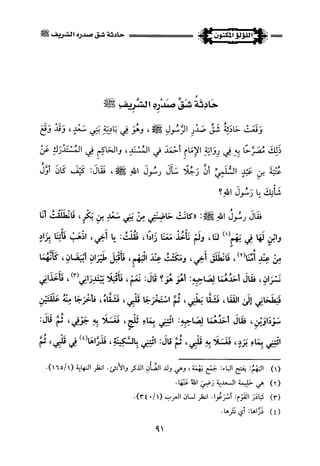 اللؤلؤ المكنون
حادثة شق صدره الشريف ﷺ
حَادِثَةُ شَقِّ صَدْرِهِ الشَّرِيفِ ﷺ
وَقَعَتْ حَادِثَةُ شَقِّ صَدْرِ الرَّسُولِ ﷺ، وَهُوَ فِي بَادِيَةِ بَنِي سَعْدٍ، وَقَدْ وَقَعَ
ذَلِكَ مُصَرَّحًا بِهِ فِي رِوَايَةِ الإِمَامِ أَحْمَدَ فِي الْمُسْنَدِ، والحَاكِمِ فِي الْمُسْتَدْرَكِ عَنْ
عُتْبَةَ بنِ عَبْدٍ السُّلَمِيِّ أَنَّ رَجُلًا سَأَلَ رَسُولَ اللهِ ﷺ، فَقَالَ: كَيْفَ كَانَ أَوَّلُ
شَأْنِكَ يا رَسُولَ اللهِ؟
فقَالَ رَسُولُ اللهِ ﷺ: «كَانَتْ حَاضِنَتِي مِنْ بَنِي سَعْدِ بنِ بَكْرٍ، فَانْطَلَقْتُ أنَا
وابْنٌ لَهَا فِي بَهْمٍ(١) لنَا، ولَمْ نَأْخُذْ مَعَنَا زَادًا، فَقُلْتُ: يا أَخِي، اذْهَبْ فَأْتِنَا بِزَادٍ
مِنْ عِنْدِ أُمِّنَا(٢)، فَانْطَلَقَ أَخِي، ومَكَثْتُ عِنْدَ الْبَهْمِ، فَأَقْبَلَ طَيْرَانِ أبْيَضَانِ، كَأَنَّهُمَا
نَسْرَانِ، فقَالَ أحَدُهُمَا لِصَاحِبِهِ: أهُوَ هُوَ؟ قَالَ: نَعَمْ، فَأَقْبَلَا يَبْتَدِرَانِي(٣)، فَأَخَذَانِي
فَبَطَحَانِي إلَى القَفَا، فَشَقَّا بَطْنِي، ثُمَّ اسْتَخْرَجَا قَلْبِي، فَشَقَّاهُ، فأَخْرَجَا مِنْهُ عَلَقَتَيْنِ
سَوْدَاوَيْنِ، فقَالَ أحَدُهُمَا لِصَاحِبِهِ: ائْتِنِي بِمَاءِ ثَلْجٍ، فَغَسَلَا بِهِ جَوْفِي، ثُمَّ قَالَ:
ائْتِنِي بِمَاءِ بَرَدٍ، فَغَسَلَا بِهِ قَلْبِي، ثُمَّ قَالَ: ائْتِنِي بِالسَّكِينَةِ، فَذَرَّاهَا(٤) فِي قَلْبِي، ثُمَّ
(١) البَهْمُ: بفتح الباء: جَمْعُ بَهْمَة، وهي ولد الضَّأن الذكر والأنثى. انظر النهاية (١/١٦٥).
(٢) هي حَلِيمة السعدية رَضِيَ اللهُ عَنْهَا.
(٣) تَبَادَرَ القَوْمُ: أسْرَعُوا. انظر لسان العرب (١/٣٤٠).
(٤) ذَرَّاهَا: أي نَثَرَها.
٩١